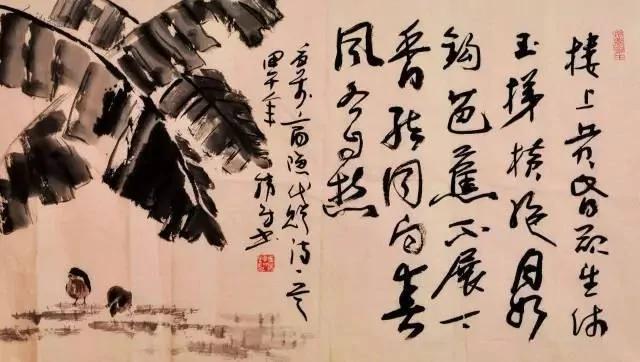 楼上黄昏欲望休
玉梯横绝月如
钩芭蕉不展丁
香结同向春
风各自愁
商隐代赠诗一首
甲午年
书